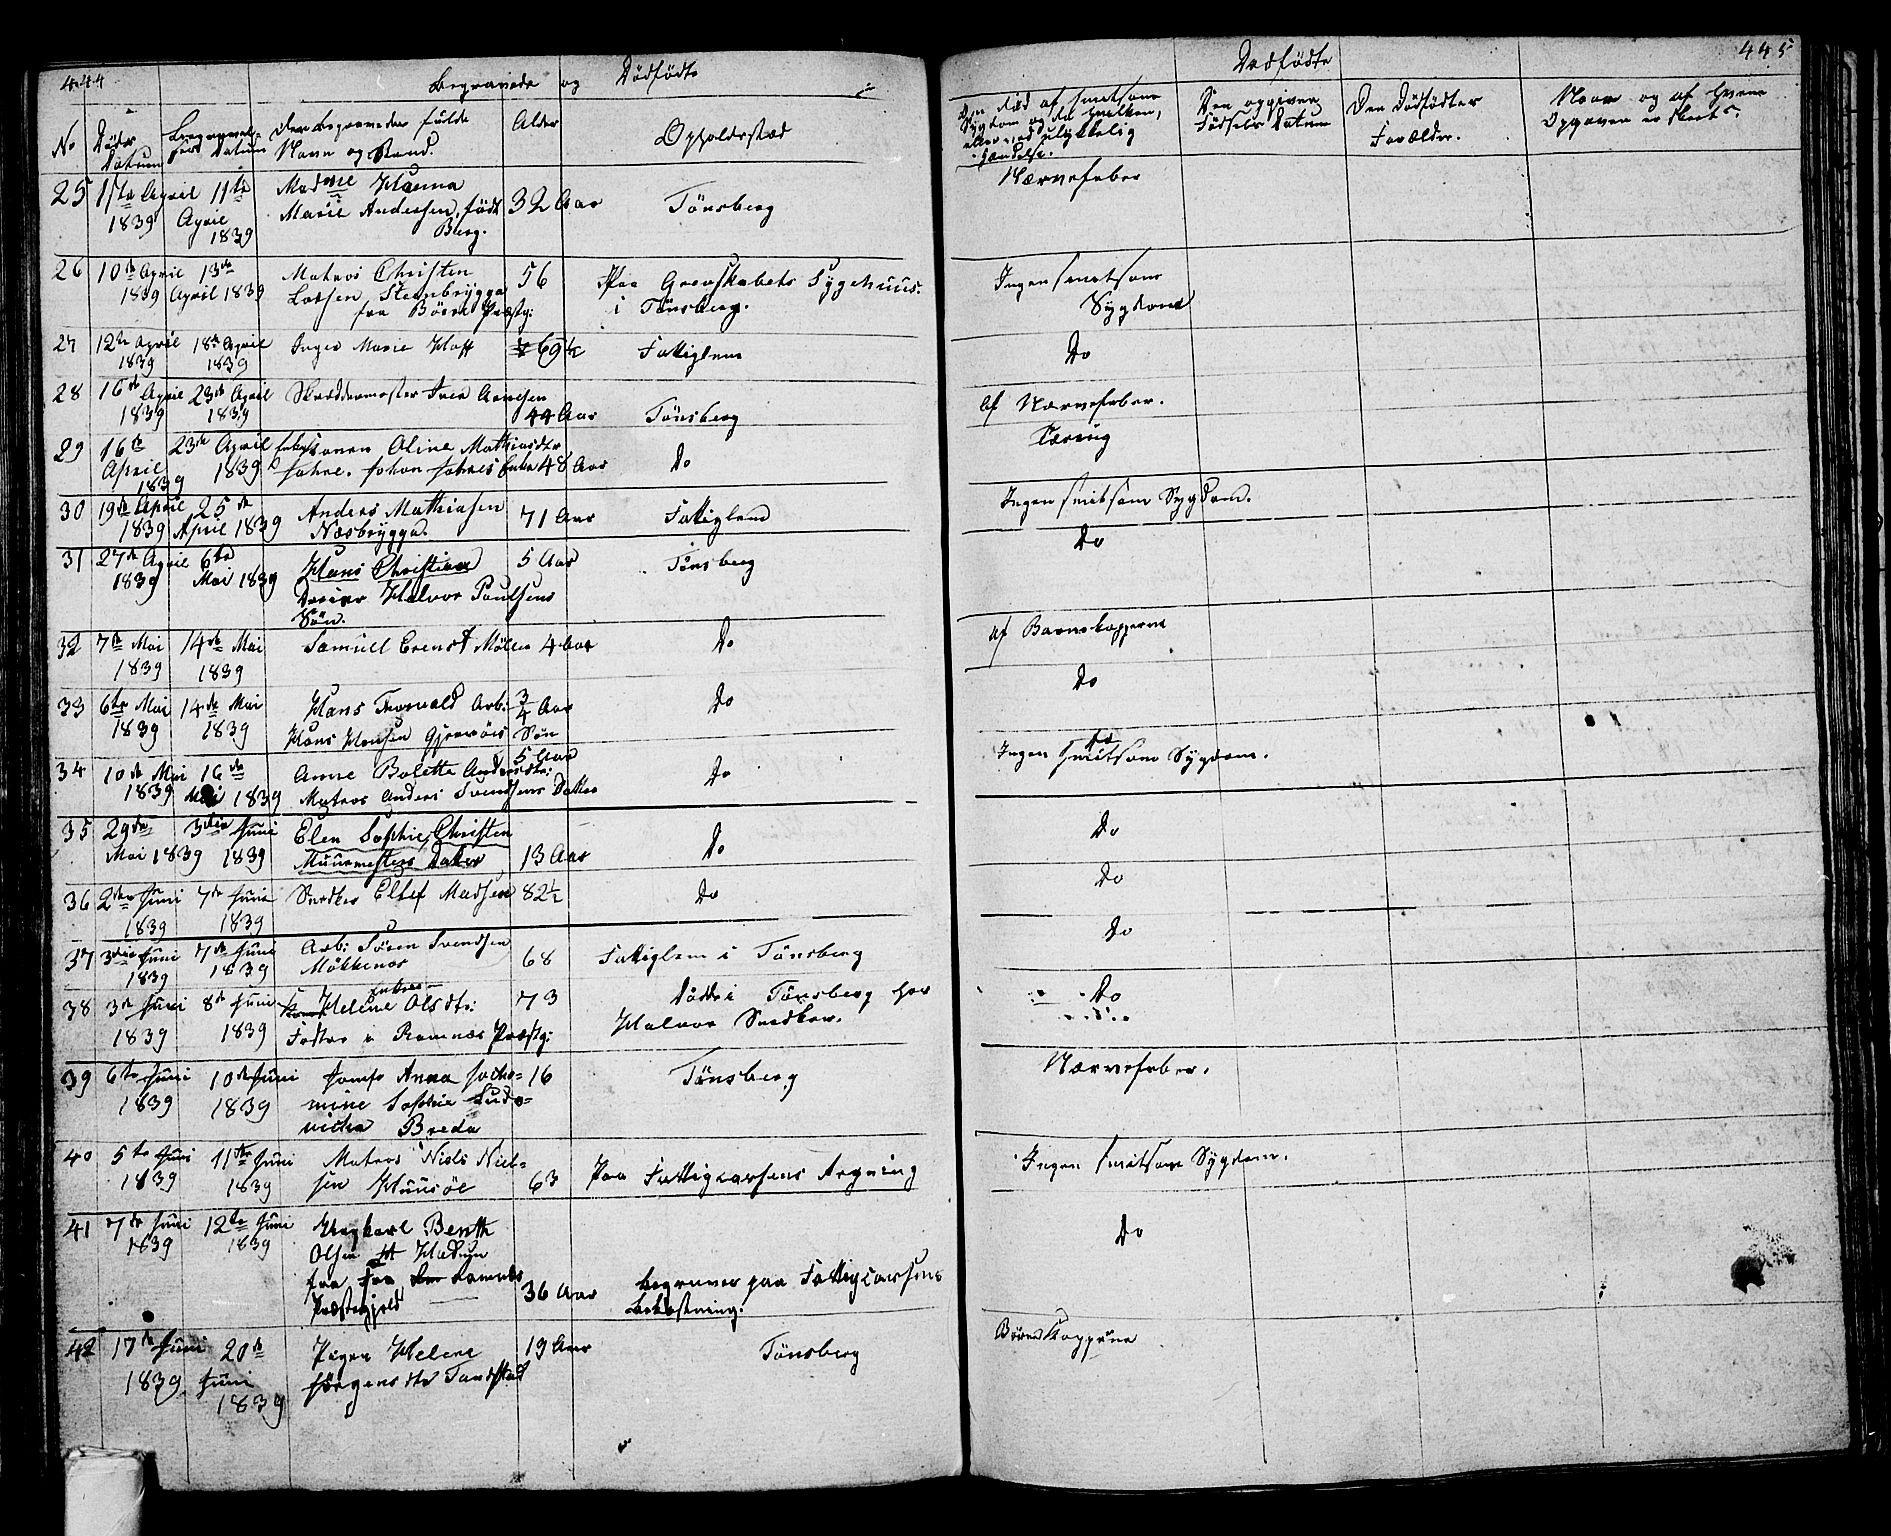 444
Begravede og Dödfödte
No
Döds Datum
Begravelses Datum
Den Begravedes fulde
Navn og Stand.
Alder
Opholdssted
25 1ste April 11te Madme Hanna
1839 April Marie Andersen, födt 32 Aar Tönsberg
1839 Berg.
26 10de April 13de Matros Christen 56 Paa Grevskabets Sygehuus
1839 April 1839 Larsen Steenbrygga i Tönsberg.
fra Præstg:
27 12te April 18de April Inger Marie Hoff 69½ Fattiglem
1839 1839
28 16de April 23de April Skræddermester Iver Arnesen
1839 1839 44 Aar Tönsberg
29 16de 23de April Oline Mathiasdtr
April 1839 Johan 48 Aar Do
1839
30 19de April 25de Anders Mathiasen 71 Aar Fattiglem
1839 April 1839 Næsbrygga.
31 27de April 6te Hans Christian 5 Aar Tönsberg
1839 Mai 1839 Halvor Poulsens
Sön.
32 7de Mai 14de Mai Samuel Ernst Möller 4 Aar Do
1839 1839
33 6te Mai 14de Mai Hans Torvald Arb: ¾ Aar Do
1839 1839 Hans Hansen Gjervöes Sön
34 10de Mai 16de Anne Bolette Andersdtr: 5 Aar Do
1839 Mai 1839 Matros Anders Svendsens Datter
35 29de 3die Juni Elen Sophie, Christen
Mai 1839 1839 Muurmesters Datter 13 Aar Do
36 2den Juni 7de Juni Snedker Ellef Madsen 82½ Do
1839 1839
37 3die Juni 7de Juni Arb: Sören Svendsen 68 Fattiglem i Tönsberg
1839 1839 Mökkenas
38 3de Juni 8de Juni Enke Helene Olsdtr: 73 Döde i Tönsberg hos
1839 1839 i Ramnæs Præstg: Halvor Snedker.
39 6te Juni 10de Juni Jomfr Anna Jacho- 16 Tönsberg
1839 1839 mine Sophie Ludo-
vicka Breda
40 5te Juni 11te Juni Matros Niels Niel-
1839 1839 sen Huusöe 63 Paa Fattigcassens Regning
41 7de Juni 12te Juni Ungkarl Benth
1839 1839 Olsen
fra Ramnæs 36 Aar begraves paa Fattigcassens
Præstegjeld Bekostning.
42 17de Juni 20de Pigen Helene 19 Aar Tönsberg
1839 Juni Jörgensdtr Tandstad
1839
Dödfödte
445
Den Död af smitsom
Sygdom og da hvilken,
eller ved ulykkelig
Hændelse.
Den opgivne
Födsels Datum
Den Dödfödtes
Forældre.
Naar og af hvem
Opgaven er skeet.
Nærvefeber
Ingen smitsom
Sygdom
Do
Af Nærvefeber.
Tæring
Ingen smitsom Sygdom.
Do
af Barnekopperne
Do
Ingen smitsom Sygdom.
Do
Do
Do
Do
Nærvefeber.
Ingen smitsom Sygdom.
Do
Börnekopperne